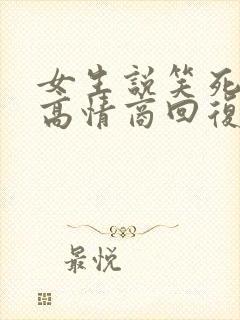 女生說笑死
高情商回復
最悅